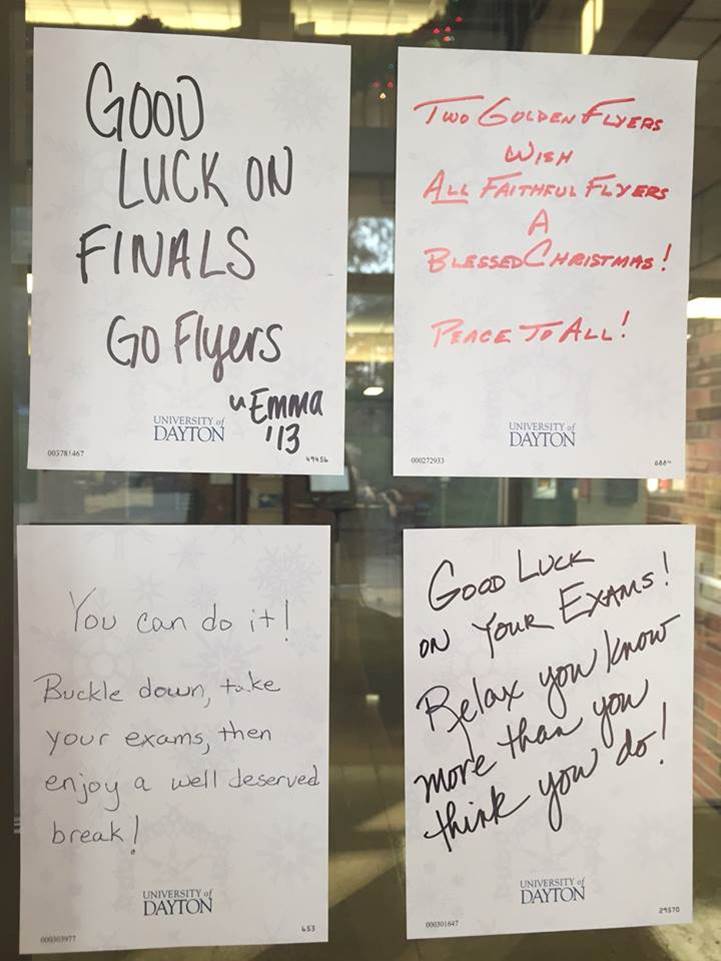 GOOD
LUCK ON
FINALS
GO Flyers
Emma
'13
UNIVERSITY of
DAYTON
003781467
49456
TWO GOLDEN FLYERS
WISH
ALL FAITHFUL FLYERS
A
BLESSED CHRISTMAS!
PEACE TO ALL!
UNIVERSITY of
DAYTON
000272933
You can do it!
Buckle down, take
your exams, then
enjoy a well deserved
break!
UNIVERSITY of
DAYTON
000303977
653
GOOD LUCK
ON YOUR EXAMS!
Relax you know
more than you
think you do!
UNIVERSITY of
DAYTON
000301647
29570